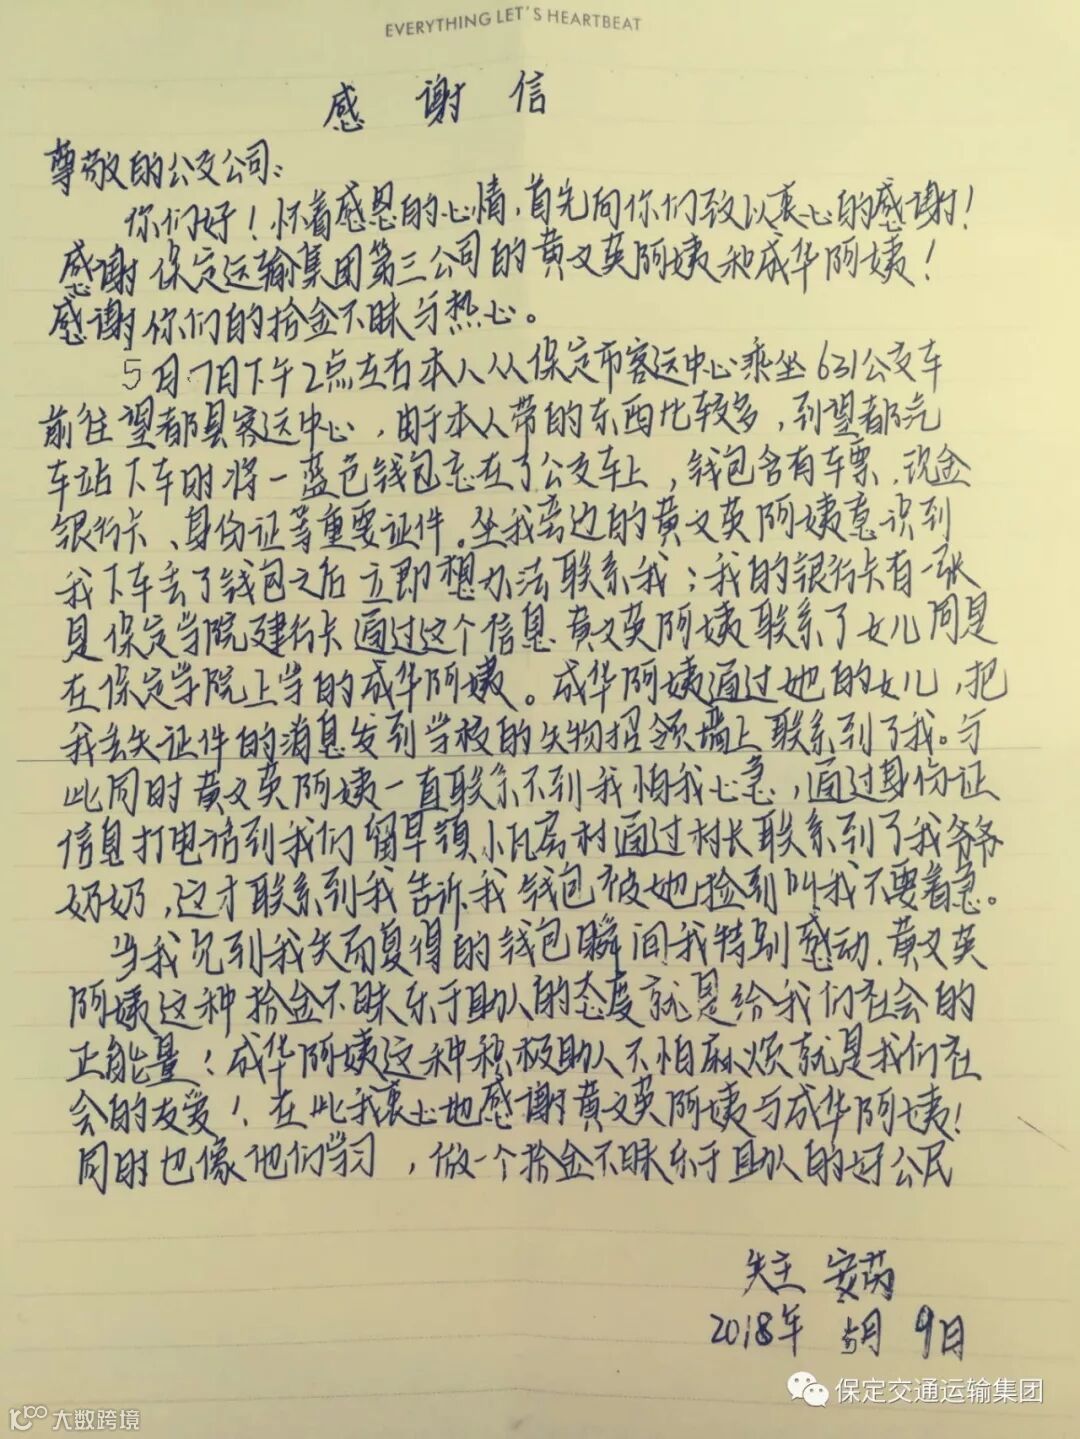 EVERYTHING LET'S HEARTBEAT
感 谢 信
尊敬的公交公司:
你们好！怀着感恩的心情,首先向你们致以衷心的感谢！
感谢保定运输集团第三公司的黄文英阿姨和成华阿姨！
感谢你们的拾金不昧与热心。
5月7日下午2点左右本人从保定市客运中心乘坐631公交车
前往望都县客运中心,由于本人带的东西比较多,到望都汽
车站下车时将一蓝色钱包忘在了公交车上,钱包含有车票.现金
银行卡、身份证等重要证件。坐我旁边的黄文英阿姨意识到
我下车丢了钱包之后立即想办法联系我;我的银行卡有一张
是保定学院建行卡通过这个信息黄文英阿姨联系了女儿同是
在保定学院上学的成华阿姨。成华阿姨通过她的女儿,把
我丢失证件的消息发到学校的失物招领墙上联系到了我。与
此同时黄文英阿姨一直联系不到我怕我心急,通过身份证
信息打电话到我们留早镇小瓦房村通过村长联系到了我爷爷
奶奶,这才联系到我告诉我钱包被她捡到叫我不要着急。
当我见到我失而复得的钱包瞬间我特别感动.黄文英
阿姨这种拾金不昧乐于助人的态度就是给我们社会的
正能量！成华阿姨这种积极助人不怕麻烦就是我们社
会的友爱！在此我衷心地感谢黄文英阿姨与成华阿姨！
同时也像他们学习,做一个拾金不昧乐于助人的好公民
失主 安芮
2018年 5月 9日
保定交通运输集团
大数跨境